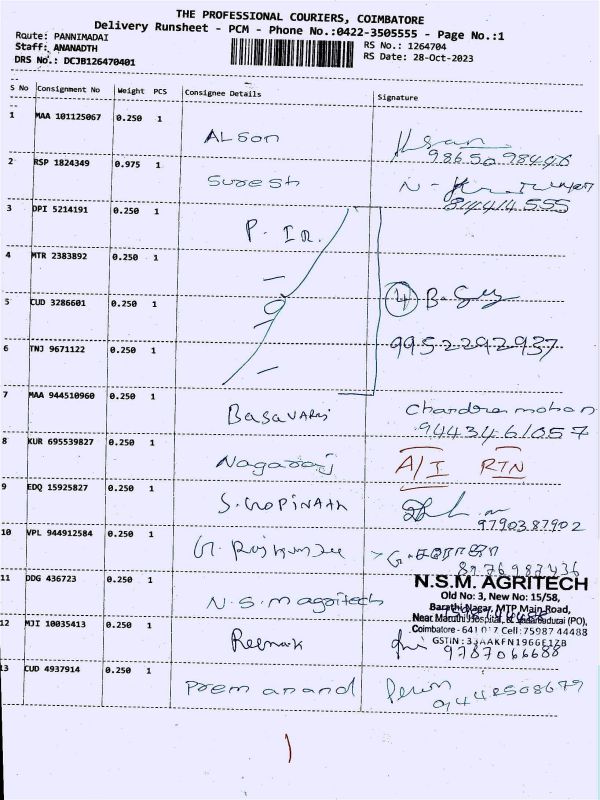 THE PROFESSIONAL COURIERS, COIMBATORE
Delivery Runsheet - PCM - Phone No.:0422-3505555 - Page No.:1
Route: PANNIMADAI
RS No.: 1264704
Staff: ANANADTH
RS Date: 28-Oct-2023
DRS No.: DCJB126470401
S No Consignment No Weight PCS Consignee Details Signature
1 MAA 101125067 0.250 1
ALSon
98650 98446
2 RSP 1824349 0.975 1
Suresh
814414555
3 DPI 5214191 0.250 1
P. IR.
4 MTR 2383892 0.250 1
5 CUD 3286601 0.250 1
4
6 TNJ 9671122 0.250 1
9952292937
7 MAA 944510960 0.250 1
Basavaraj Chandra mohan
9443461057
8 KUR 695539827 0.250 1
Nagaraj A/I RTN
9 EDQ 15925827 0.250 1
S. GOPINATH
9790387902
10 VPL 944912584 0.250 1
G. Rajkumar
8976987436
11 DDG 436723 0.250 1
N.S.M agritech
N.S.M. AGRITECH
Old No: 3, New No: 15/58,
Barathi Nagar, MTP Main Road,
Near Maruthi Hospital,
12 MJI 10035413 0.250 1
Coimbatore - 641 017 Cell: 75987 44488
GSTiN : 33AAKFN1966E1ZB
9787066688
13 CUD 4937914 0.250 1
Prem anand
9442508679